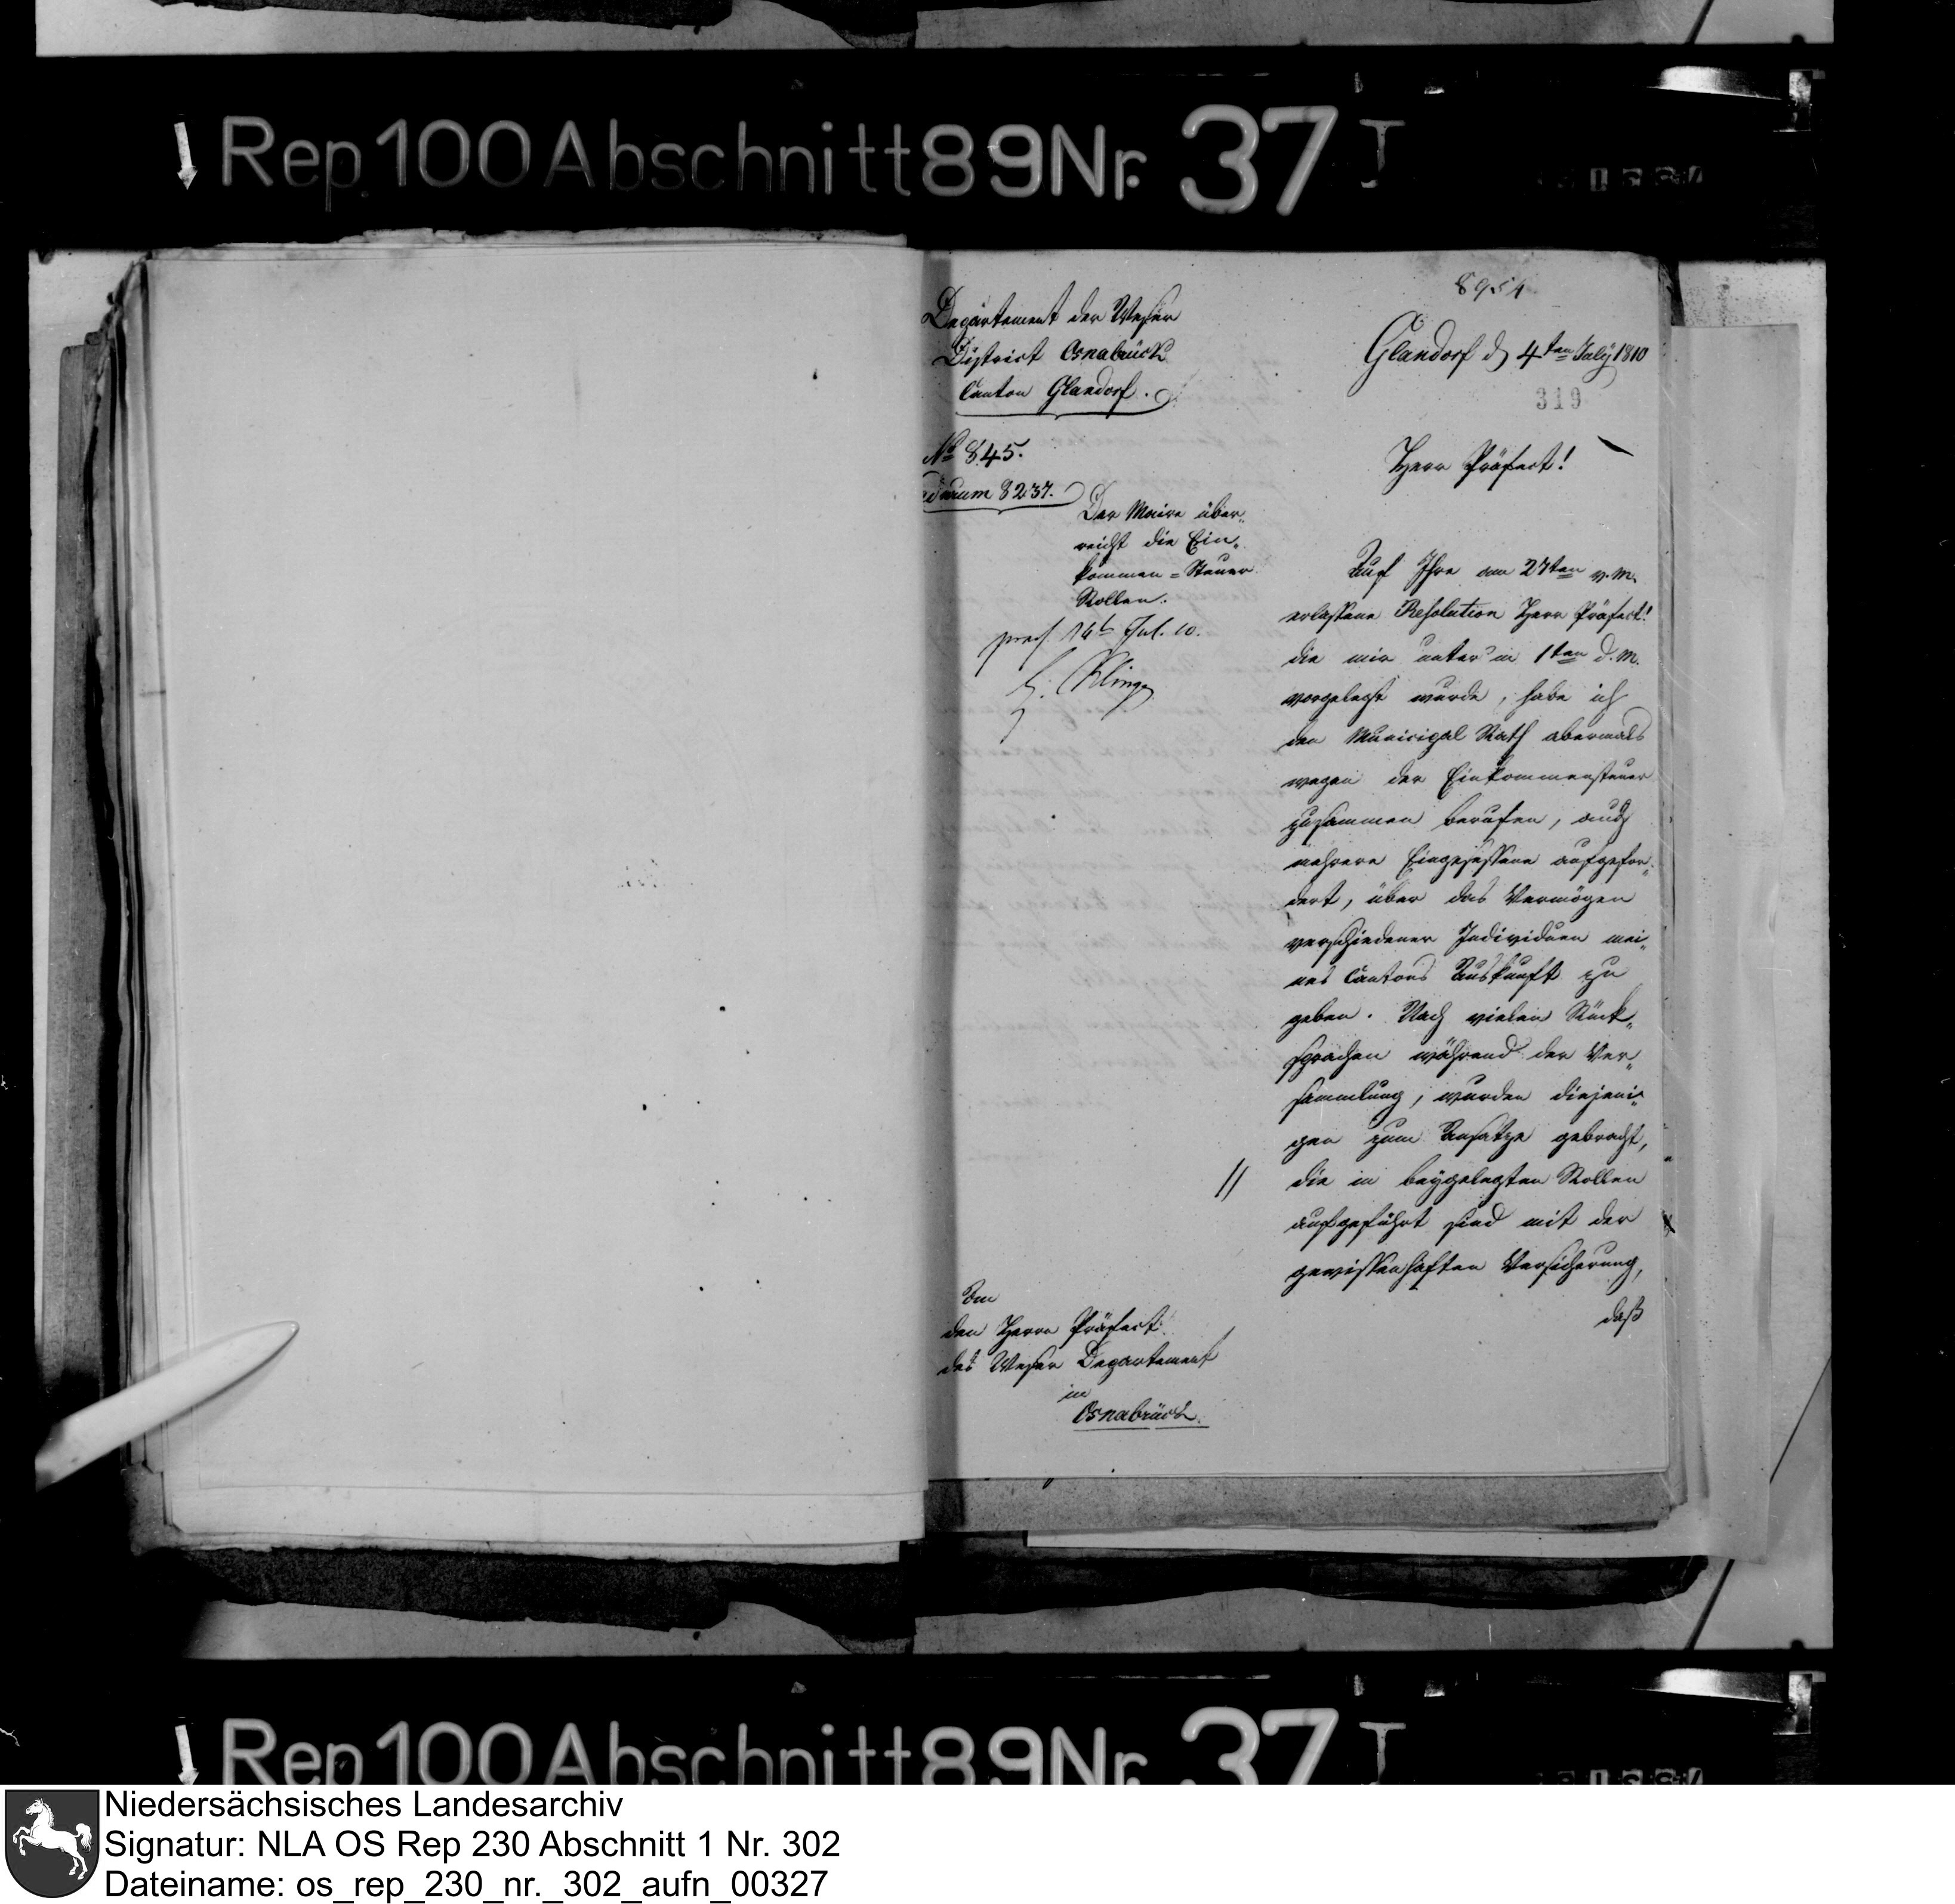 Rep 100 Abschnitt 89 Nr. 37 I
8954
Departement der Weser
District Osnabrück
Canton Glandorf.
Glandorf d 4ten July 1810
319
No 845.
Herr Präfect!
8237.
Der Maire über„
reicht die Ein„
kommen=Steuer
Rollen.
Jul. 10.
Auf Ihre am 27ten v. M.
erlassene Resolution Herr Präfect!
die mir unter'm 1ten d. M.
vorgelegt wurde, habe ich
den Municipal Rath abermals
wegen der Einkommensteuer
zusammen berufen, auch
mehrere Eingesessene aufgefor„
dert, über das Vermögen
verschiedener Individuen mei„
nes Cantons Auskunft zu
geben. Nach vielen Rück„
sprachen während der Ver„
sammlung, wurden diejeni„
gen zum Ansatze gebracht,
// die in beygelegten Rollen
aufgeführt sind mit der
gewissenhaften Versicherung,
daß
den Herrn Präfect
des Weser Departement
in
Osnabrück.
Rep 100 Abschnitt 89 Nr. 37 I
Niedersächsisches Landesarchiv
Signatur: NLA OS Rep 230 Abschnitt 1 Nr. 302
Dateiname: os_rep_230_nr._302_aufn_00327